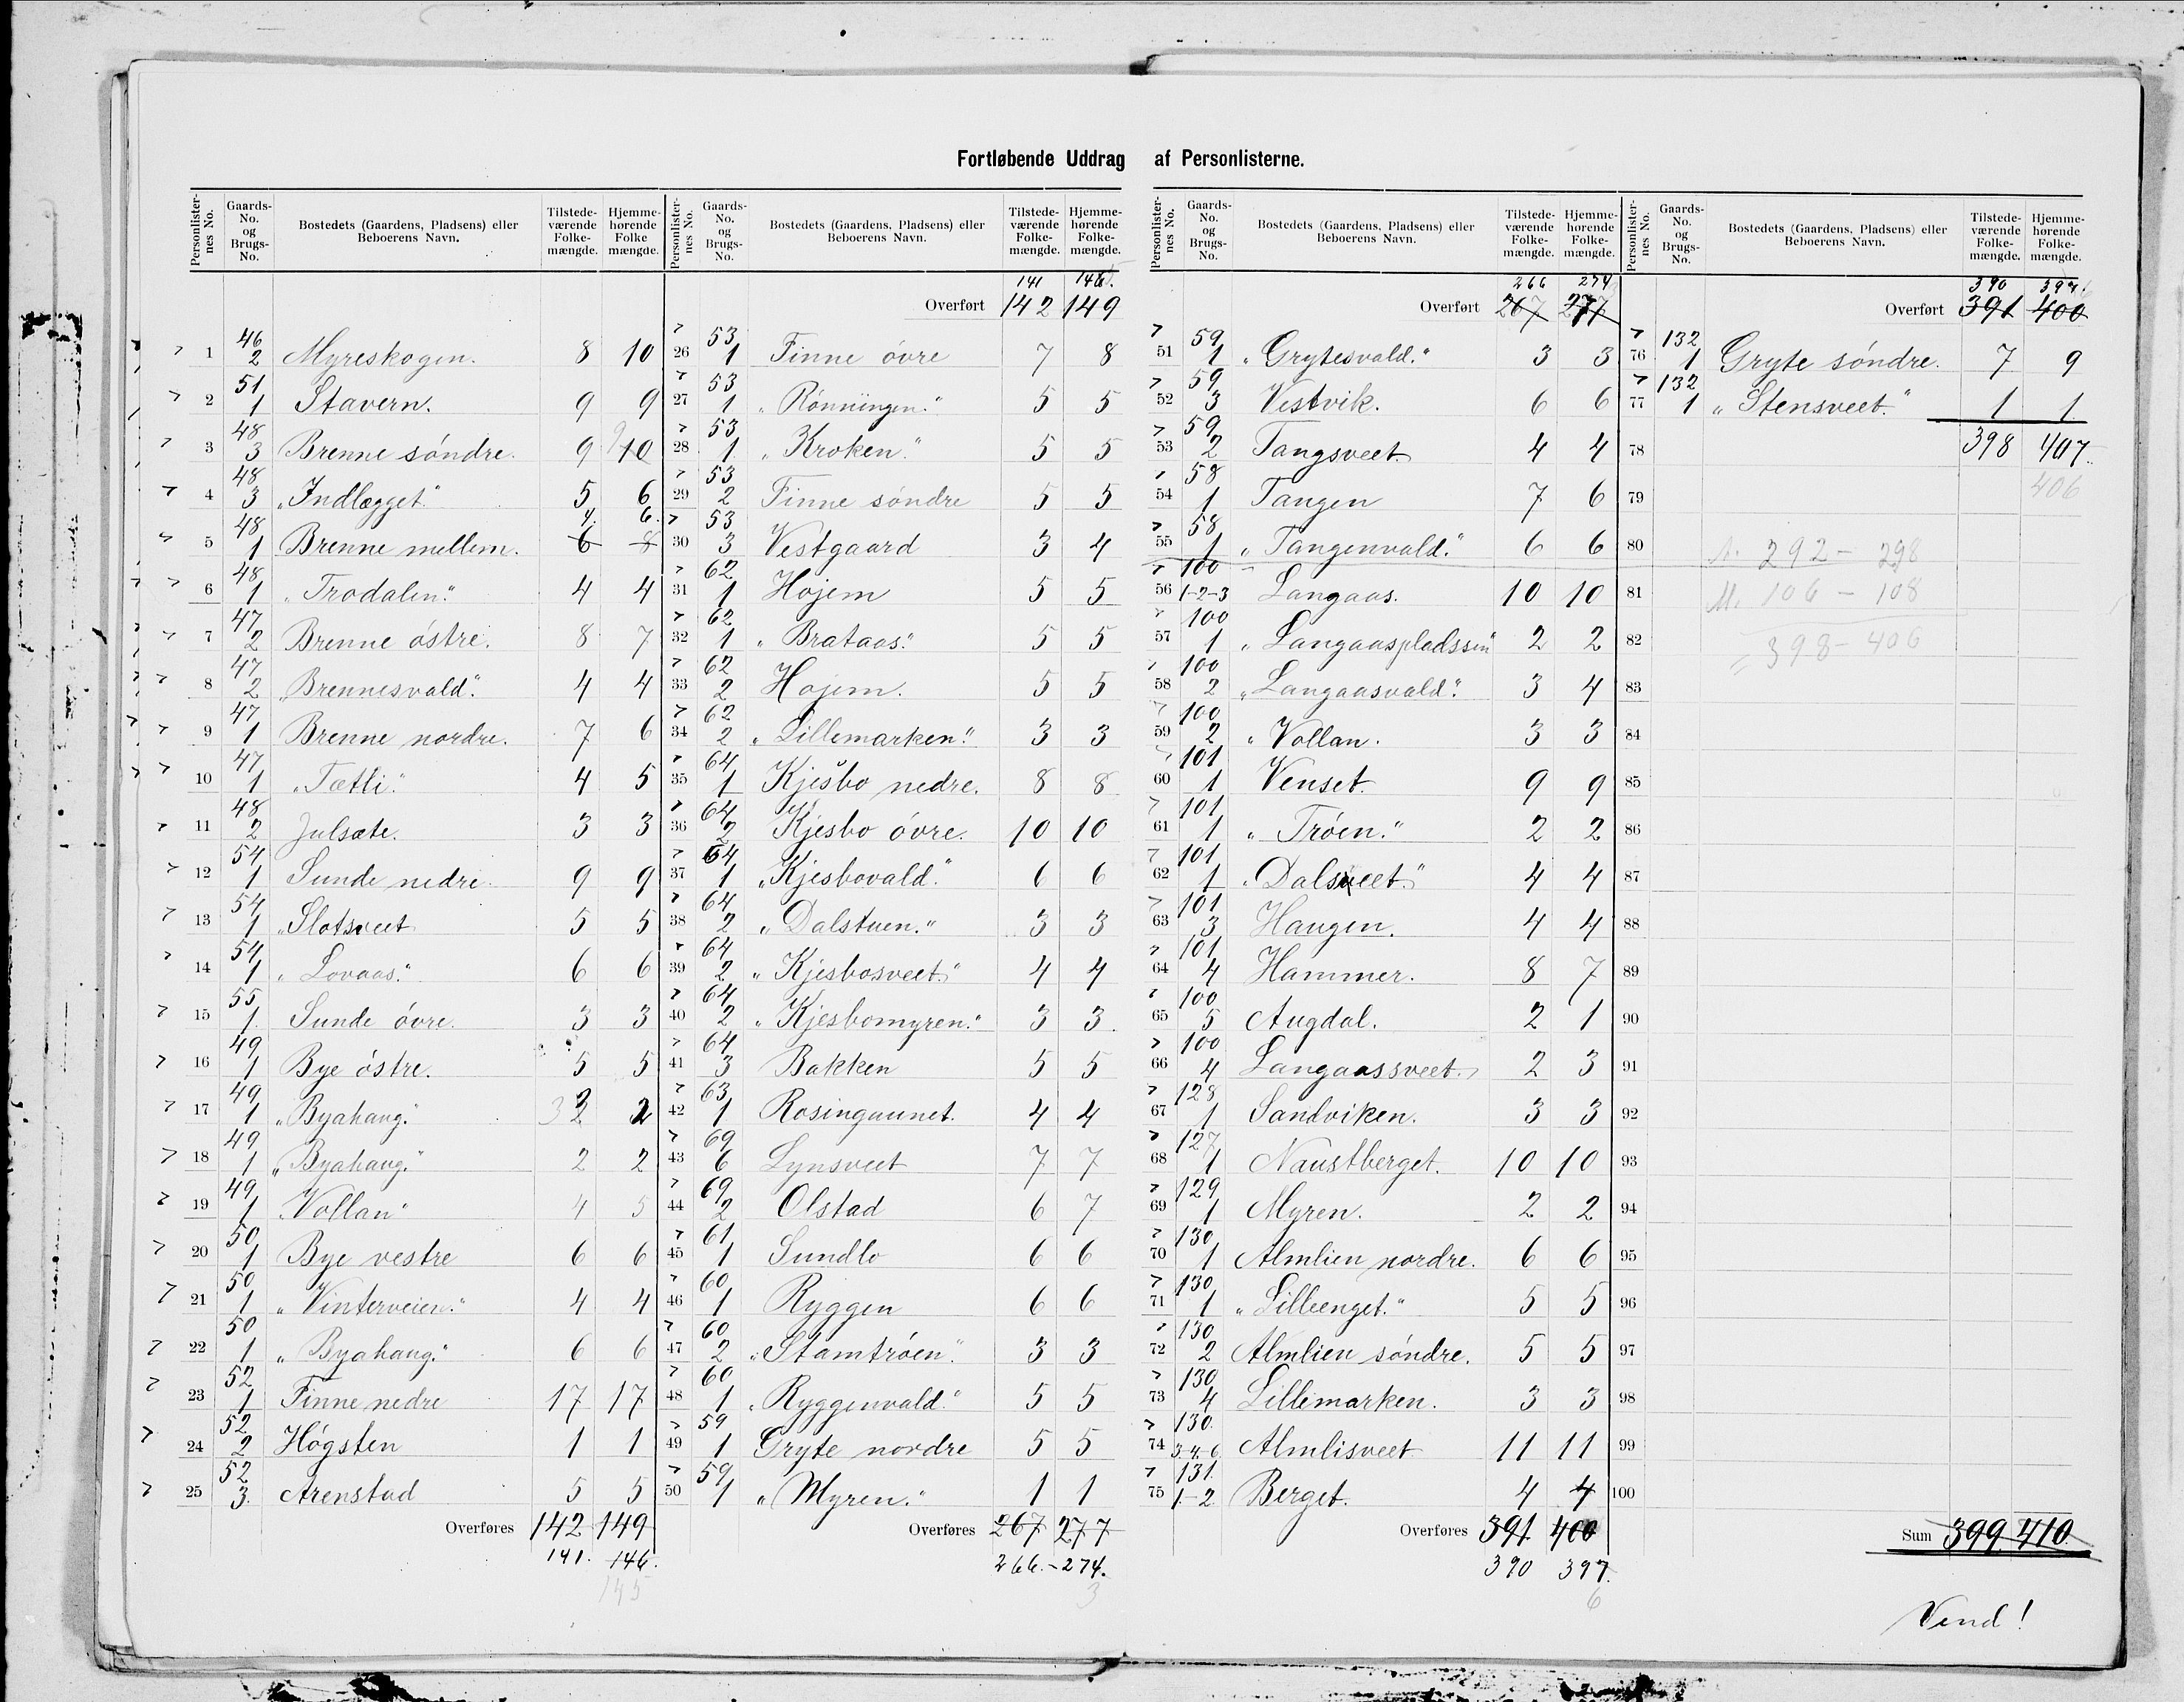 Fortløbende Uddrag af Personlisterne.
Personlister-nes No. | Gaards-No. og Brugs-No. | Bostedets (Gaardens, Pladsens) eller Beboerens Navn. | Tilstede-værende Folke-mængde. | Hjemme-hørende Folke mængde.
1 | 46 2 | Myreskogen. | 8 | 10
2 | 51 1 | Stavern. | 9 | 9
3 | 48 3 | Brenne söndre. | 9 | 10 9
4 | 48 3 | „Indlægget." | 5 | 6
5 | 48 1 | Brenne mellem. | 6 4. | 8 6.
6 | 48 1 | „Trodalen." | 4 | 4
7 | 47 2 | Brenne östre. | 8 | 7
8 | 47 2 | „Brennesvald." | 4 | 4
9 | 47 1 | Brenne nordre. | 7 | 6
10 | 47 1 | „Tætli." | 4 | 5
11 | 48 2 | Julsæte. | 3 | 3
12 | 54 1 | Sunde nedre. | 9 | 9
13 | 54 1 | „Slotsveet | 5 | 5
14 | 54 1 | „Lovaas." | 6 | 6
15 | 55 1. | Sunde övre. | 3 | 3
16 | 49 1 | Bye östre. | 5 | 5
17 | 49 1 | „Byahaug." | 3 2 | 2
18 | 49 1 | „Byahaug." | 2 | 2
19 | 49 1 | „Vollan" | 4 | 5
20 | 50 1 | Bye vestre | 6 | 6
21 | 50 1 | „Vinterveien." | 4 | 4
22 | 50 1 | „Byahaug." | 6 | 6
23 | 52 1 | Finne nedre | 17 | 17
24 | 52 2 | Högsten | 1 | 1
25 | 52 3. | Arenstad | 5 | 5
Overføres 142 149
141. 146.
145
Personlister-nes No. | Gaards-No. og Brugs-No. | Bostedets (Gaardens, Pladsens) eller Beboerens Navn. | Tilstede-værende Folke-mængde. | Hjemme-hørende Folke-mængde.
141 146.
Overført 142 149
26 | 53 1 | Finne övre | 7 | 8
27 | 53 1 | „Rönningen." | 5 | 5
28 | 53 1. | „Kroken." | 5 | 5
29 | 53 2 | Finne söndre | 5 | 5
30 | 53 3 | Vestgaard | 3 | 4
31 | 62 1 | Hojem | 5 | 5
32 | 62 1 | „Brataas." | 5 | 5
33 | 62 2 | Hojem. | 5 | 5
34 | 62 2 | „Lillemarken." | 3 | 3
35 | 64 1 | Kjesbo nedre. | 8 | 8
36 | 64 2 | Kjesbo övre. | 10 | 10
37 | 64 1 | „Kjesbovald." | 6 | 6
38 | 64 2 | „Dalstuen." | 3 | 3
39 | 64 2 | „Kjesbosveet." | 4 | 4
40 | 64 2 | „Kjesbomyren." | 3 | 3.
41 | 64 3 | Bakken | 5 | 5
42 | 63 1 | Rosingaunet. | 4 | 4
43 | 69 6 | Lynsveet | 7 | 7
44 | 69 2 | Olstad | 6 | 7
45 | 61 1 | Sundlo | 6 | 6
46 | 60 1 | Ryggen | 6 | 6
47 | 60 2 | „Stamtröen". | 3 | 3
48 | 60 1 | „Ryggenvald." | 5 | 5
49 | 59 1 | Gryte nordre | 5 | 5
50 | 59 1 | „Myren." | 1 | 1
Overføres 267 277
266. - 274.
3
Personlister-nes No. | Gaards-No. og Brugs-No. | Bostedets (Gaardens, Pladsens) eller Beboerens Navn. | Tilstede-værende Folke-mængde. | Hjemme-hørende Folke-mængde.
266 274
Overført 267 277
51 | 59 1 | „Grytesvald." | 3 | 3
52 | 59 3 | Vestvik. | 6 | 6
53 | 59 2 | Tangsveet. | 4 | 4
54 | 58 1 | Tangen | 7 | 6
55 | 58 1 | „Tangenvald." | 6 | 6
56 | 100 1-2-3 | Langaas. | 10 | 10
57 | 100 1 | „Langaaspladssen" | 2 | 2
58 | 100 2 | „Langaasvald." | 3 | 4
59 | 100 2 | „Vollan. | 3 | 3
60 | 101 1 | Venset. | 9 | 9
61 | 101 1 | „Tröen." | 2 | 2
62 | 101 1 | „Dalsveet." | 4 | 4
63 | 101 3 | Haugen. | 4 | 4
64 | 101 4 | Hammer. | 8 | 7
65 | 100 5 | Augdal. | 2 | 1
66 | 100 4 | Langaassveet. | 2 | 3
67 | 128 1 | Sandviken. | 3 | 3
68 | 127 1 | Naustberget. | 10 | 10
69 | 129 1 | Myren. | 2 | 2
70 | 130 1 | Almlien nordre. | 6 | 6
71 | 130 1 | „Lilleenget." | 5 | 5
72 | 130 2 | Almlien söndre. | 5 | 5
73 | 130 4 | Lillemarken. | 3 | 3
74 | 130. 3-4-6 | Almlisveet | 11 | 11
75 | 131. 1-2 | Berget. | 4 | 4
Overføres 391 400
390 397.
6
Personlister-nes No. | Gaards-No. og Brugs-No. | Bostedets (Gaardens, Pladsens) eller Beboerens Navn. | Tilstede-værende Folke-mængde. | Hjemme-hørende Folke-mængde.
390 397.
Overført 391 400
76 | 132 1 | Gryte söndre. | 7 | 9
77 | 132 1 | „Stensveet." | 1 | 1
78 | 398 | 407.
406
79
80 | N. 292 - 298
81 | M. 106 - 108
82 | = 398 - 406
83
84
85
86
87
88
89
90
91
92
93
94
95
96
97
98
99
100
Sum 399 410.
Vend!